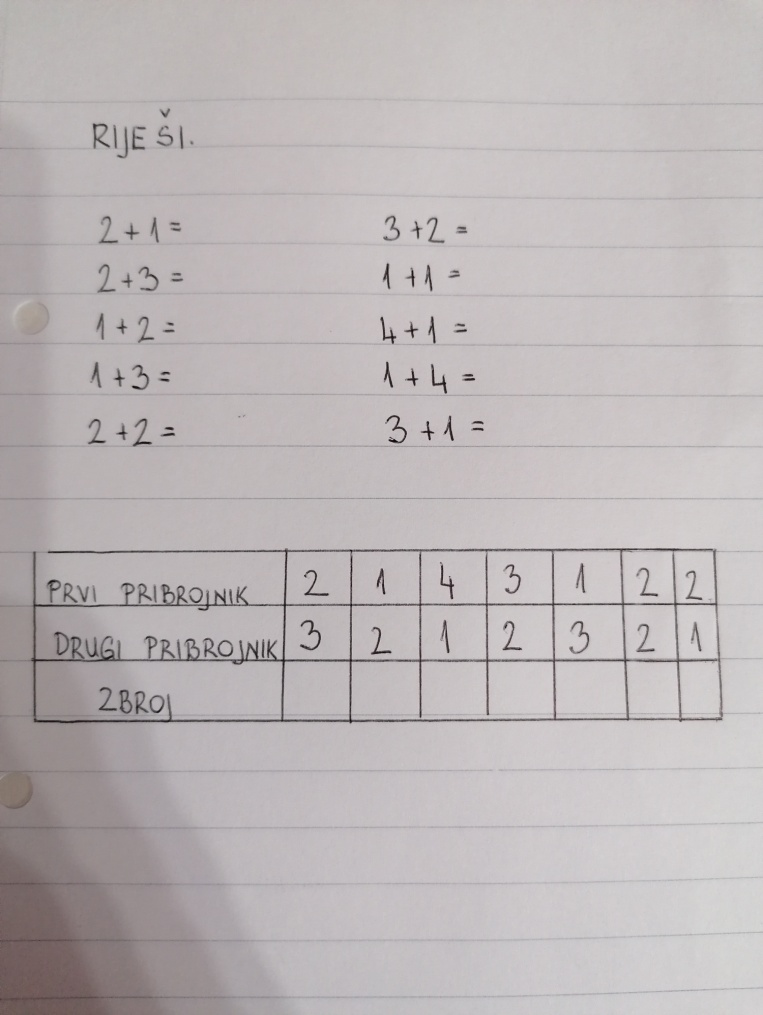 RIJEŠI.
2+1= 3+2=
2+3= 1+1=
1+2= 4+1=
1+3= 1+4=
2+2= 3+1=
PRVI PRIBROJNIK 2 1 4 3 1 2 2
DRUGI PRIBROJNIK 3 2 1 2 3 2 1
ZBROJ